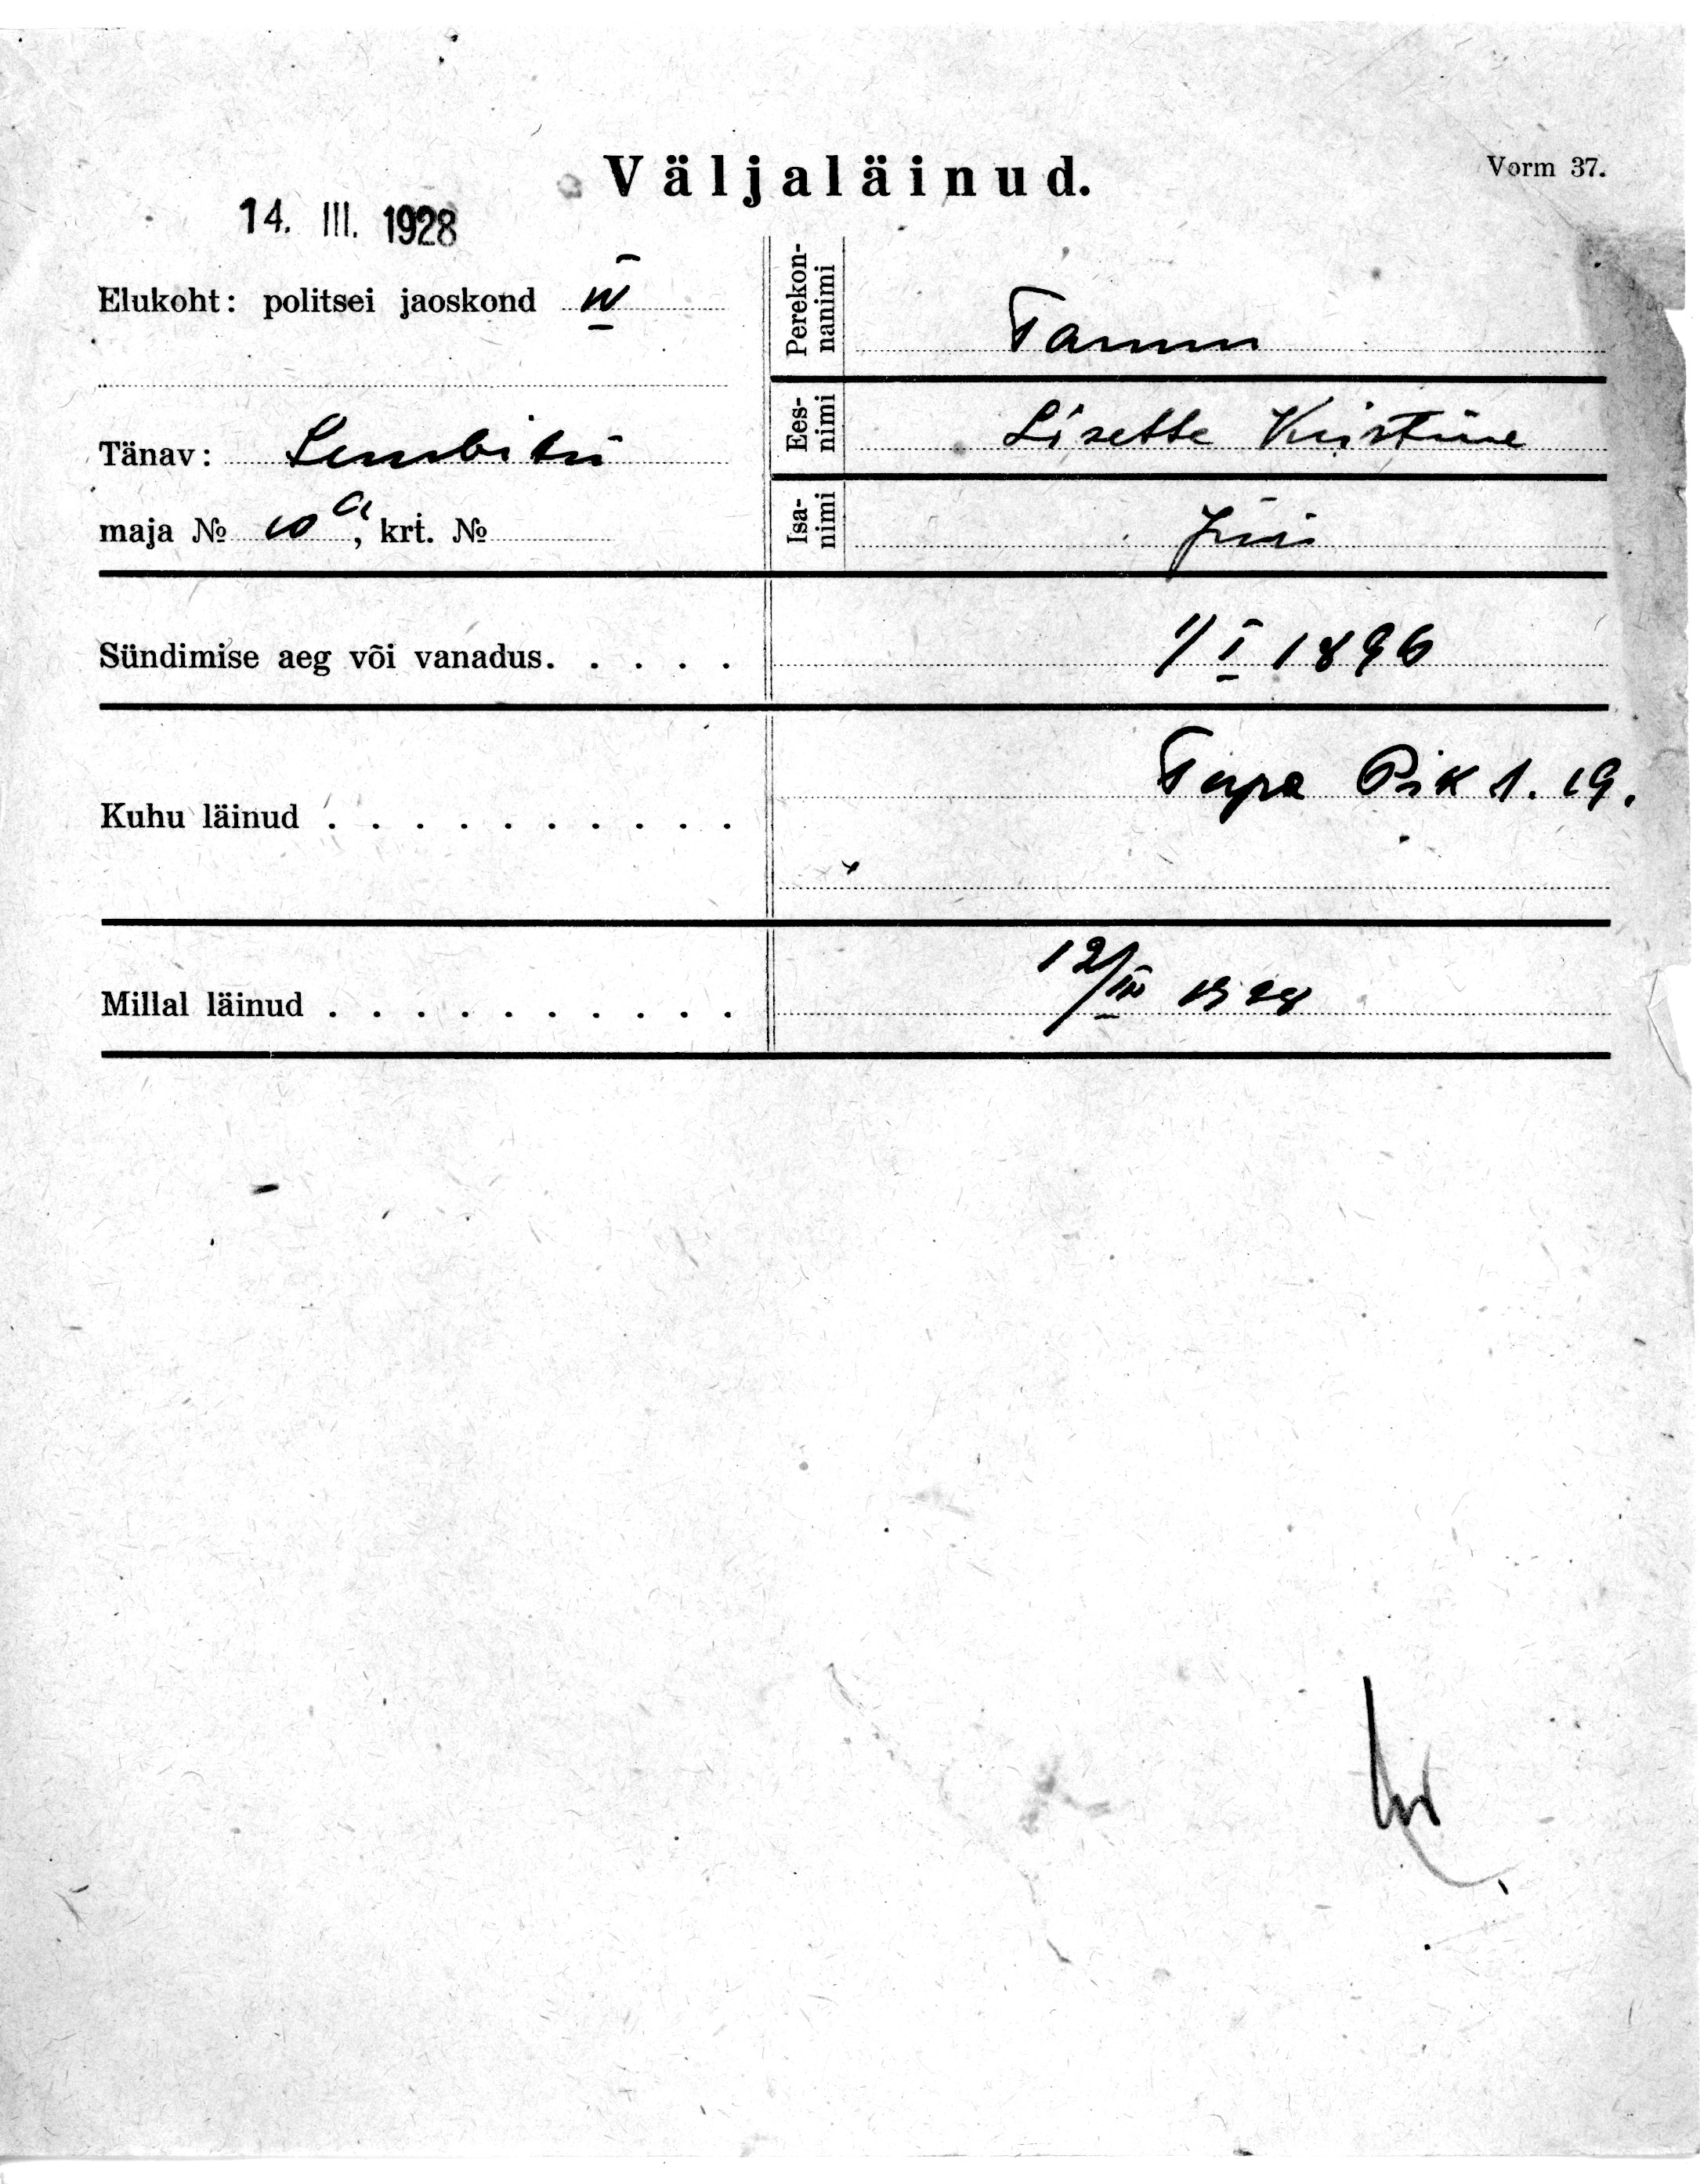 Väljaläinud.
Vorm 37.
14. III. 1928
Elukoht: politsei jaoskond IV
Tänav: Lembitu
maja № 10 a, krt. №
Perekonnanimi Tamm
Eesnimi Lisette Kristine
Isanimi Jüri
Sündimise aeg või vanadus. . . . . 1/I 1896
Kuhu läinud . . . . . . . . . . Tapa Pik t. 19.
Millal läinud . . . . . . . . . . 12/III 1928